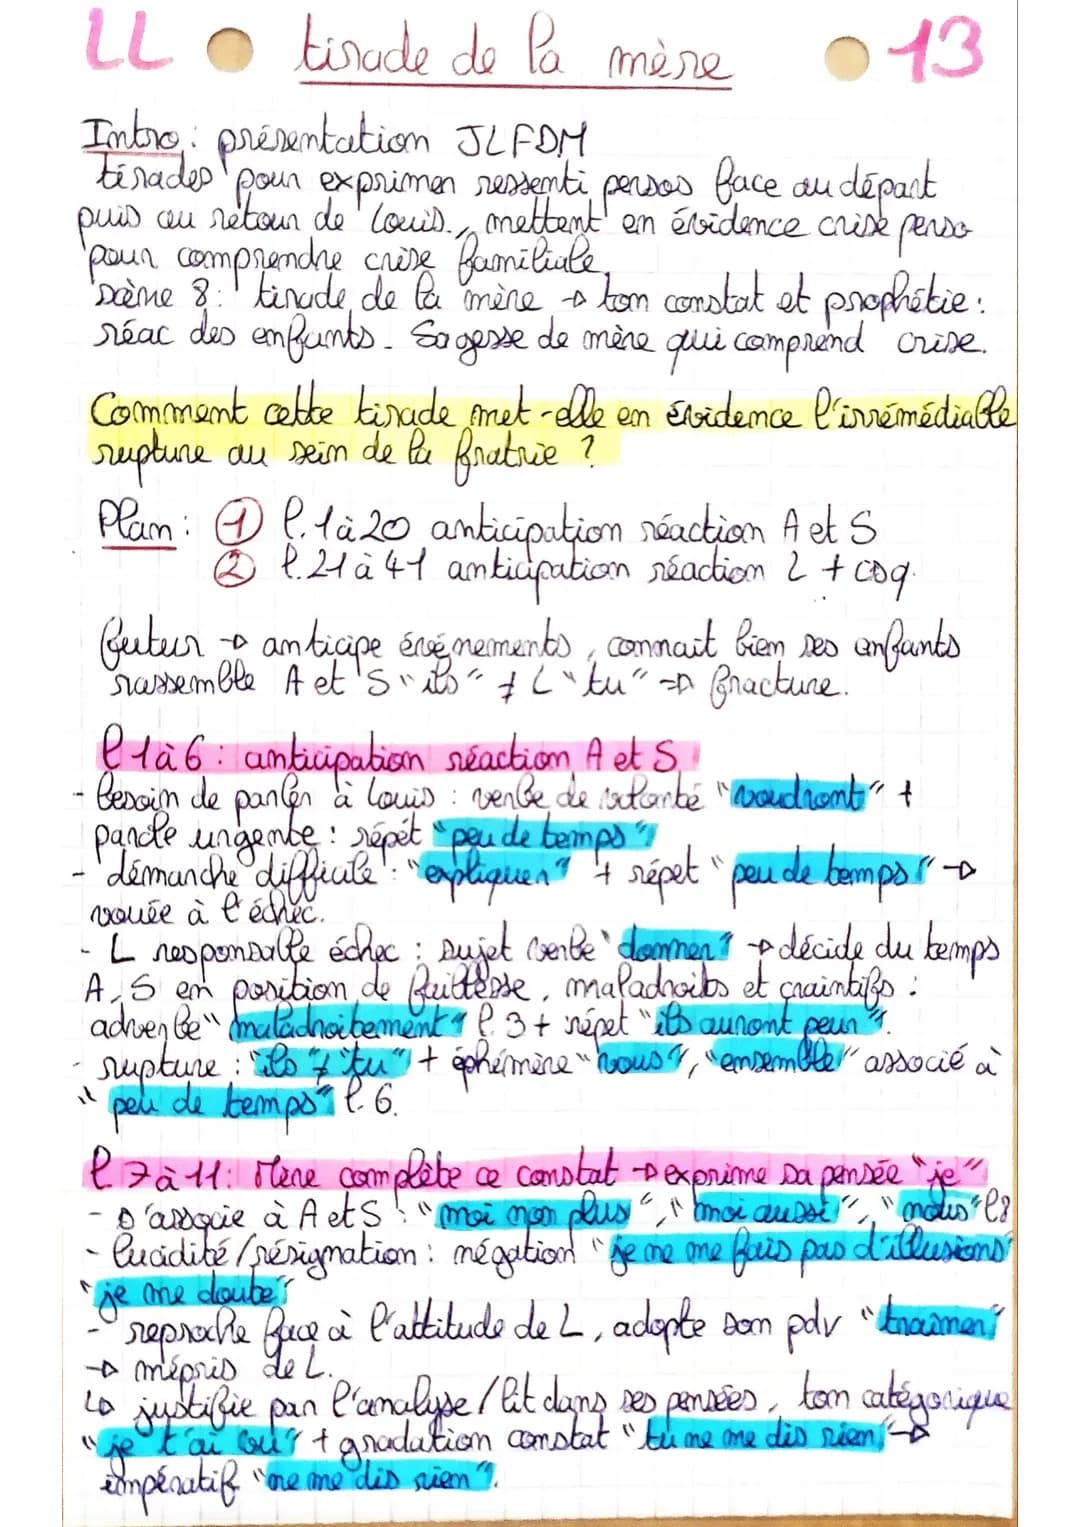 LL tirade de la mère 13
Intro : présentation JLFDM
tirades pour exprimer ressenti persos face au départ
puis au retour de Louis., mettent en évidence crise perso
pour comprendre crise familiale
Scène 8 : tirade de la mère → ton constat et prophétie :
réac des enfants. Sagesse de mère qui comprend crise.
Comment cette tirade met-elle en évidence l'irrémédiable
rupture au sein de la fratrie ?
Plan : ① l.1à20 anticipation réaction A et S
② l.21 à 41 anticipation réaction L + csq.
futur → anticipe événements, connait bien ses enfants
rassemble A et S "ils" ≠ L "tu" => fracture.
l 1à6 : anticipation réaction A et S
- besoin de parler à Louis : verbe de volonté "voudront" +
parole urgente : répét "peu de temps"
- démarche difficile : "expliquer" + répet "peu de temps" →
vouée à l'échec.
- L responsable échec : sujet verbe "donner" → décide du temps
A, S en position de faiblesse, maladroits et craintifs :
adverbe "maladroitement" l. 3 + répet "ils auront peur".
- rupture : "ils" ≠ "tu" + éphémère "vous", "ensemble" associé à
"peu de temps" l. 6.
l 7à11 : Mère complète ce constat → exprime sa pensée "je"
- s'associe à A et S : "moi non plus", "moi aussi", "nous" l8
- lucidité/résignation : négation "je ne me fais pas d'illusions"
"je me doute"
- reproche face à l'attitude de L, adopte son pdv "traîner"
→ mépris de L.
↳ justifie par l'analyse/lit dans ses pensées, ton catégorique
"je t'ai vu" + gradation constat "tu ne me dis rien" →
impératif "ne me dis rien".